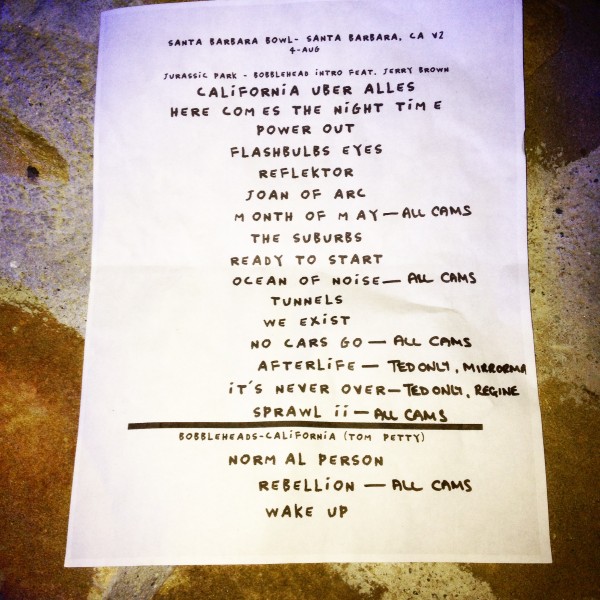 SANTA BARBARA BOWL- SANTA BARBARA, CA V2
4-AUG
JURASSIC PARK - BOBBLEHEAD INTRO FEAT. JERRY BROWN
CALiFORNiA UBER ALLES
HERE COM ES THE NiGHT TiM E
POWER OUT
FLASHBULBS EYES
REFLEKTOR
JOAN OF ARC
M ONTH OF M AY — ALL CAMS
THE SUBURBS
READY TO START
OCEAN OF NOiSE — ALL CAMS
TUNNELS
WE EXiST
NO CARS GO — ALL CAMS
AFTERLiFE — TED ONLY, MIRRORMA
iT'S NEVER OVER — TED ONLY, REGINE
SPRAWL ii — ALL CAMS
BOBBLEHEADS-CALiFORNiA (TOM PETTY)
NORM AL PERSON
REBELLiON — ALL CAMS
WAKE UP